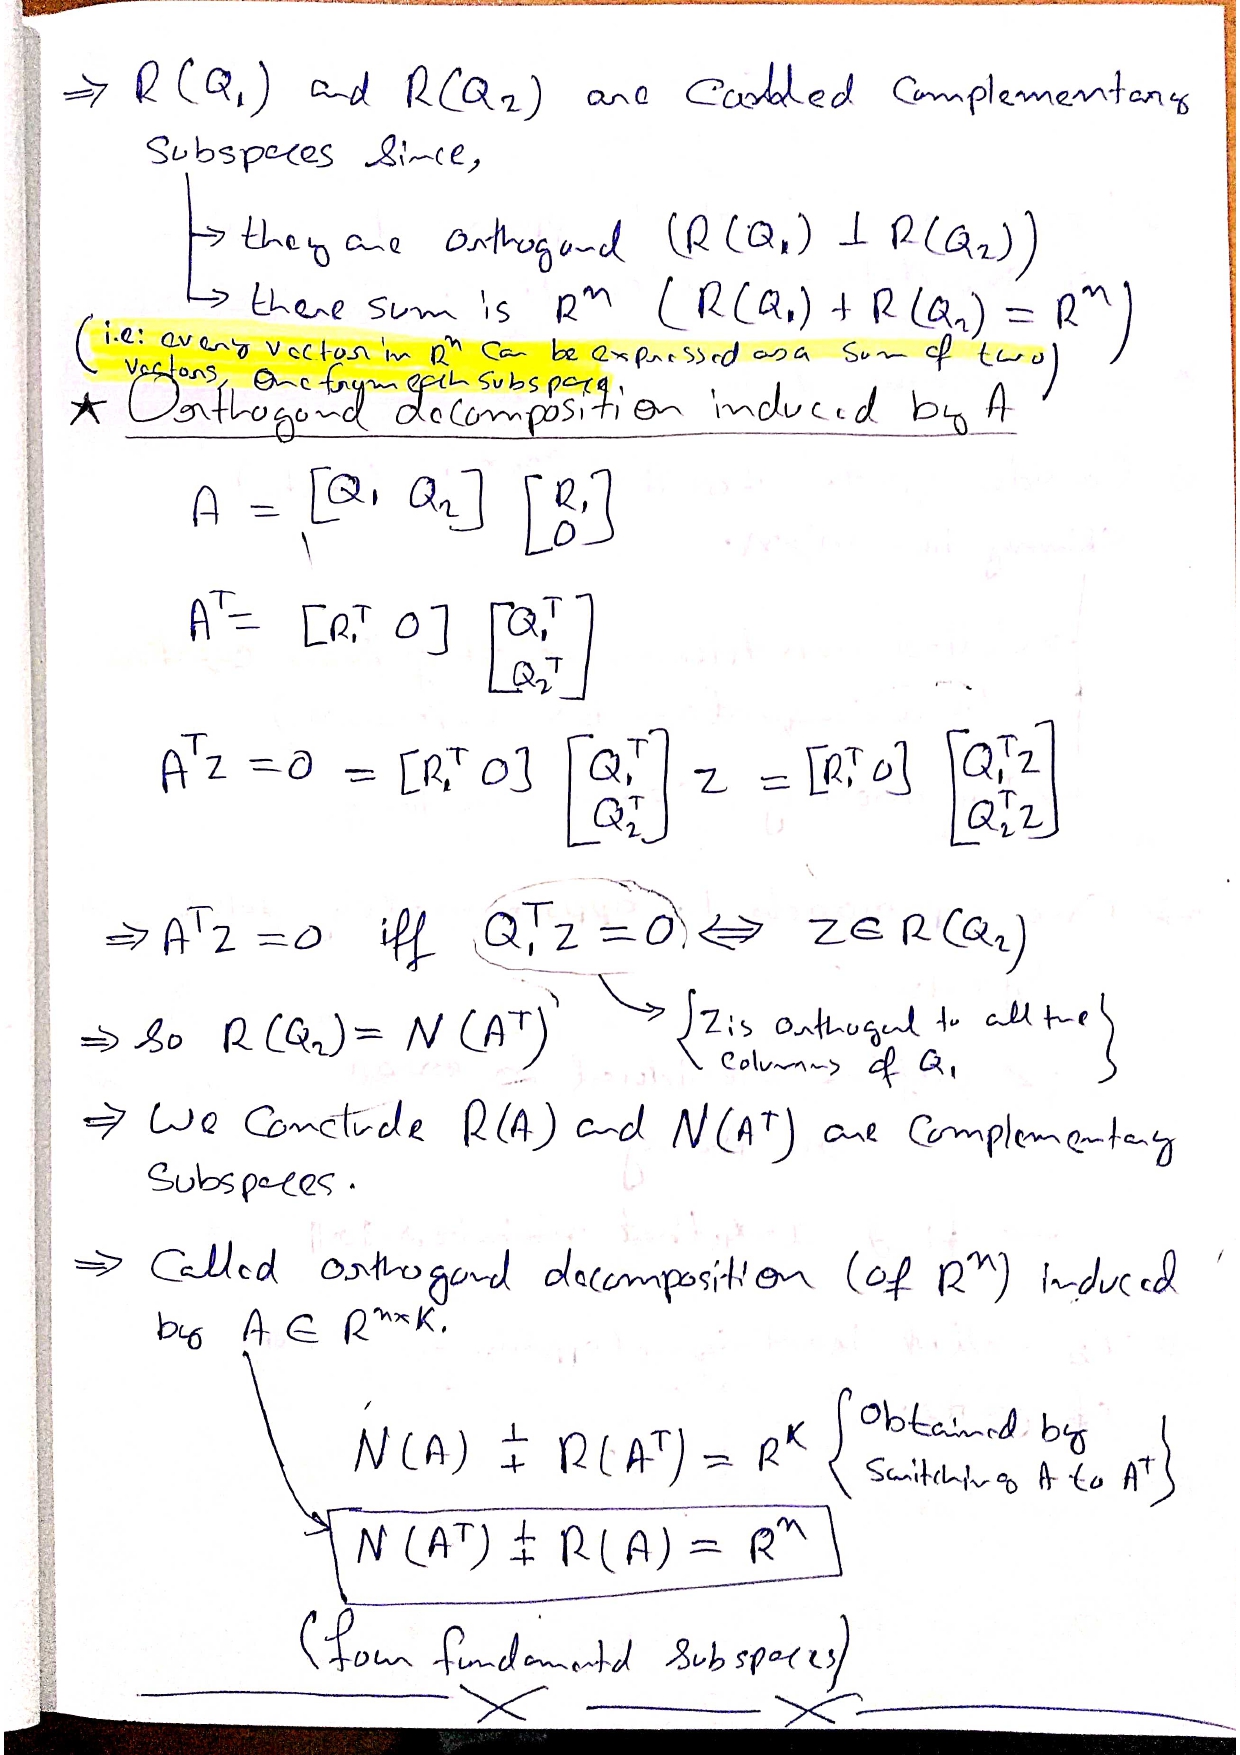 ⇒ R(Q₁) and R(Q₂) are Called Complementary
Subspaces Since,
↳ they are orthogonal (R(Q₁) ⊥ R(Q₂))
↳ there sum is Rⁿ (R(Q₁) + R(Q₂) = Rⁿ)
(i.e: every vector in Rⁿ can be expressed as a sum of two
vectors, one from each subspace.)
★ Orthogonal decomposition induced by A
A = [Q₁ Q₂] [R₁ 0]
Aᵀ = [R₁ᵀ 0] [Q₁ᵀ Q₂ᵀ]
Aᵀz = 0 = [R₁ᵀ 0] [Q₁ᵀ Q₂ᵀ] z = [R₁ᵀ 0] [Q₁ᵀz Q₂ᵀz]
⇒ Aᵀz = 0 iff Q₁ᵀz = 0 ⇔ z ∈ R(Q₂)
⇒ So R(Q₂) = N(Aᵀ) → {z is orthogonal to all the
columns of Q₁}
⇒ We Conclude R(A) and N(Aᵀ) are Complementary
Subspaces.
⇒ Called orthogonal decomposition (of Rⁿ) induced
by A ∈ Rⁿˣᴷ.
N(A) ∔ R(Aᵀ) = Rᴷ {Obtained by
Switching A to Aᵀ}
N(Aᵀ) ∔ R(A) = Rⁿ
(four fundamental subspaces)